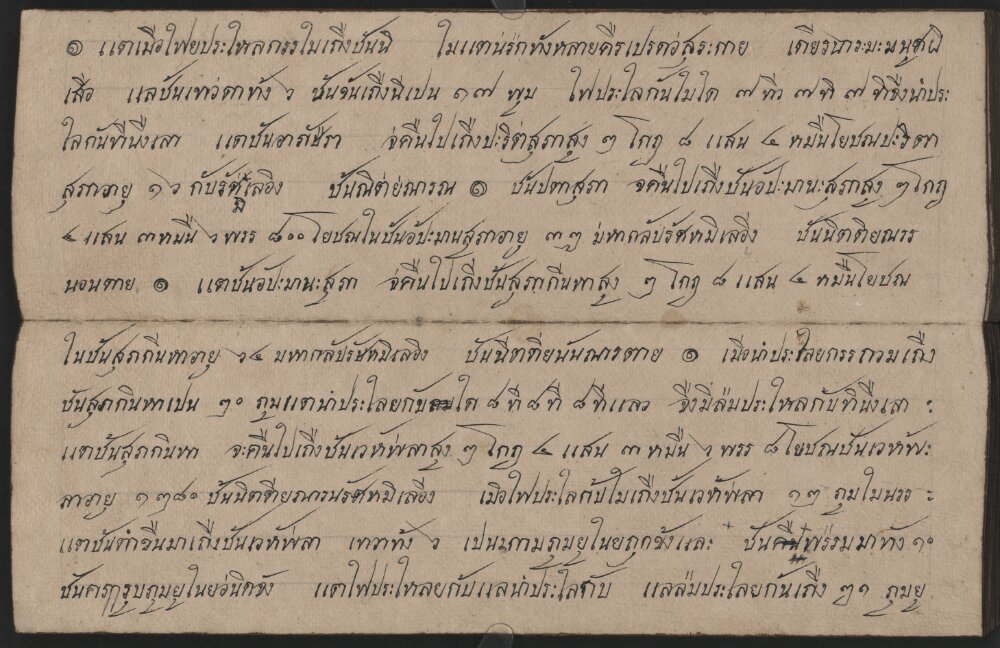 ๏ แตเมือไฟยประไหลกรรไมเถืงชันนิ ไมแตน่รกทังหลายคืรเปรดวสุระกาย เดียรฉาระมะมนูศผิ
เสือ แลชันเทวดาทัง ๖ ชันจันเถืงนีเปน ๑๗ พูม ไฟประไลกันไมได ๗ ทีว ๗ ที ๗ ทีจืงนำประ
ไลกันทีนืงเลา แตชันอาภัษีรา จคืนไปเถืงปะริตสุภาสูง ๆ โกฎ ๘ แสน ๔ หมืนโยชณปะริตา
สุภาอายุ ๑๖ กัปรัศมิเลอิง ชันณิต่ย่ณารณ ๏ ชันปตาสุภา จคืนไปเถืงชันอัปะมานะสุภาสูง ๆ โกฎ
๔ แสน ๓ หมืนื ๖ พรร ๘๐๐ โยชณในชันอัปะมานสุภาอายุ ๓๒ มหากลัปรัศหมิเลอีง ชันนิตติยณรร
นอนตาย ๏ แตชันอัปะมานะสุภา จคืนไปเถีงชันสุภกีนหาสูง ๆ โกฎ ๘ แสน ๔ หมืนโยชณ
ในชันสุภกีนหาอายุ ๖๔ มหากลัปรัษหมิเลอิง ชันนีตติยนันณารตาย ๏ เมือนำประไลยกรรกวมเถืง
ชันสุภกินหาเปัน ๆ๐ ภูมแตนำประไลยกับได ๘ ที ๘ ที ๘ ทีแลว จืงมีลมประไหลกับทีนืงเลา :
แตชันสุภกินหา จะคืนไปเถืงชันเวหัพลาสูง ๆ โกฎ ๔ แสน ๓ หมืนื ๖ พรร ๘ โยชณชันเวหัพะ
ลาอายุ ๑๓๘๐ ชันนิตติยณารนรัศหมิเลอีง เมือไฟประไลกัปไมเถืงชันเวหัพลา ๑๓ ภูมไมนรอ :
แตชันตำขืนมาเถืงชันเวหัพลา เทวาทัง ๖ เปนกามภูมยูในยถูกขังและ ชันพรัรมมาทัง ๑๐
ชันครารูบภูมยูในยวนิดจัง แตไฟประไหลยกับแลนำประไลกับ แลลมประไลยกันเถืง ๆ๑ ภูมยู